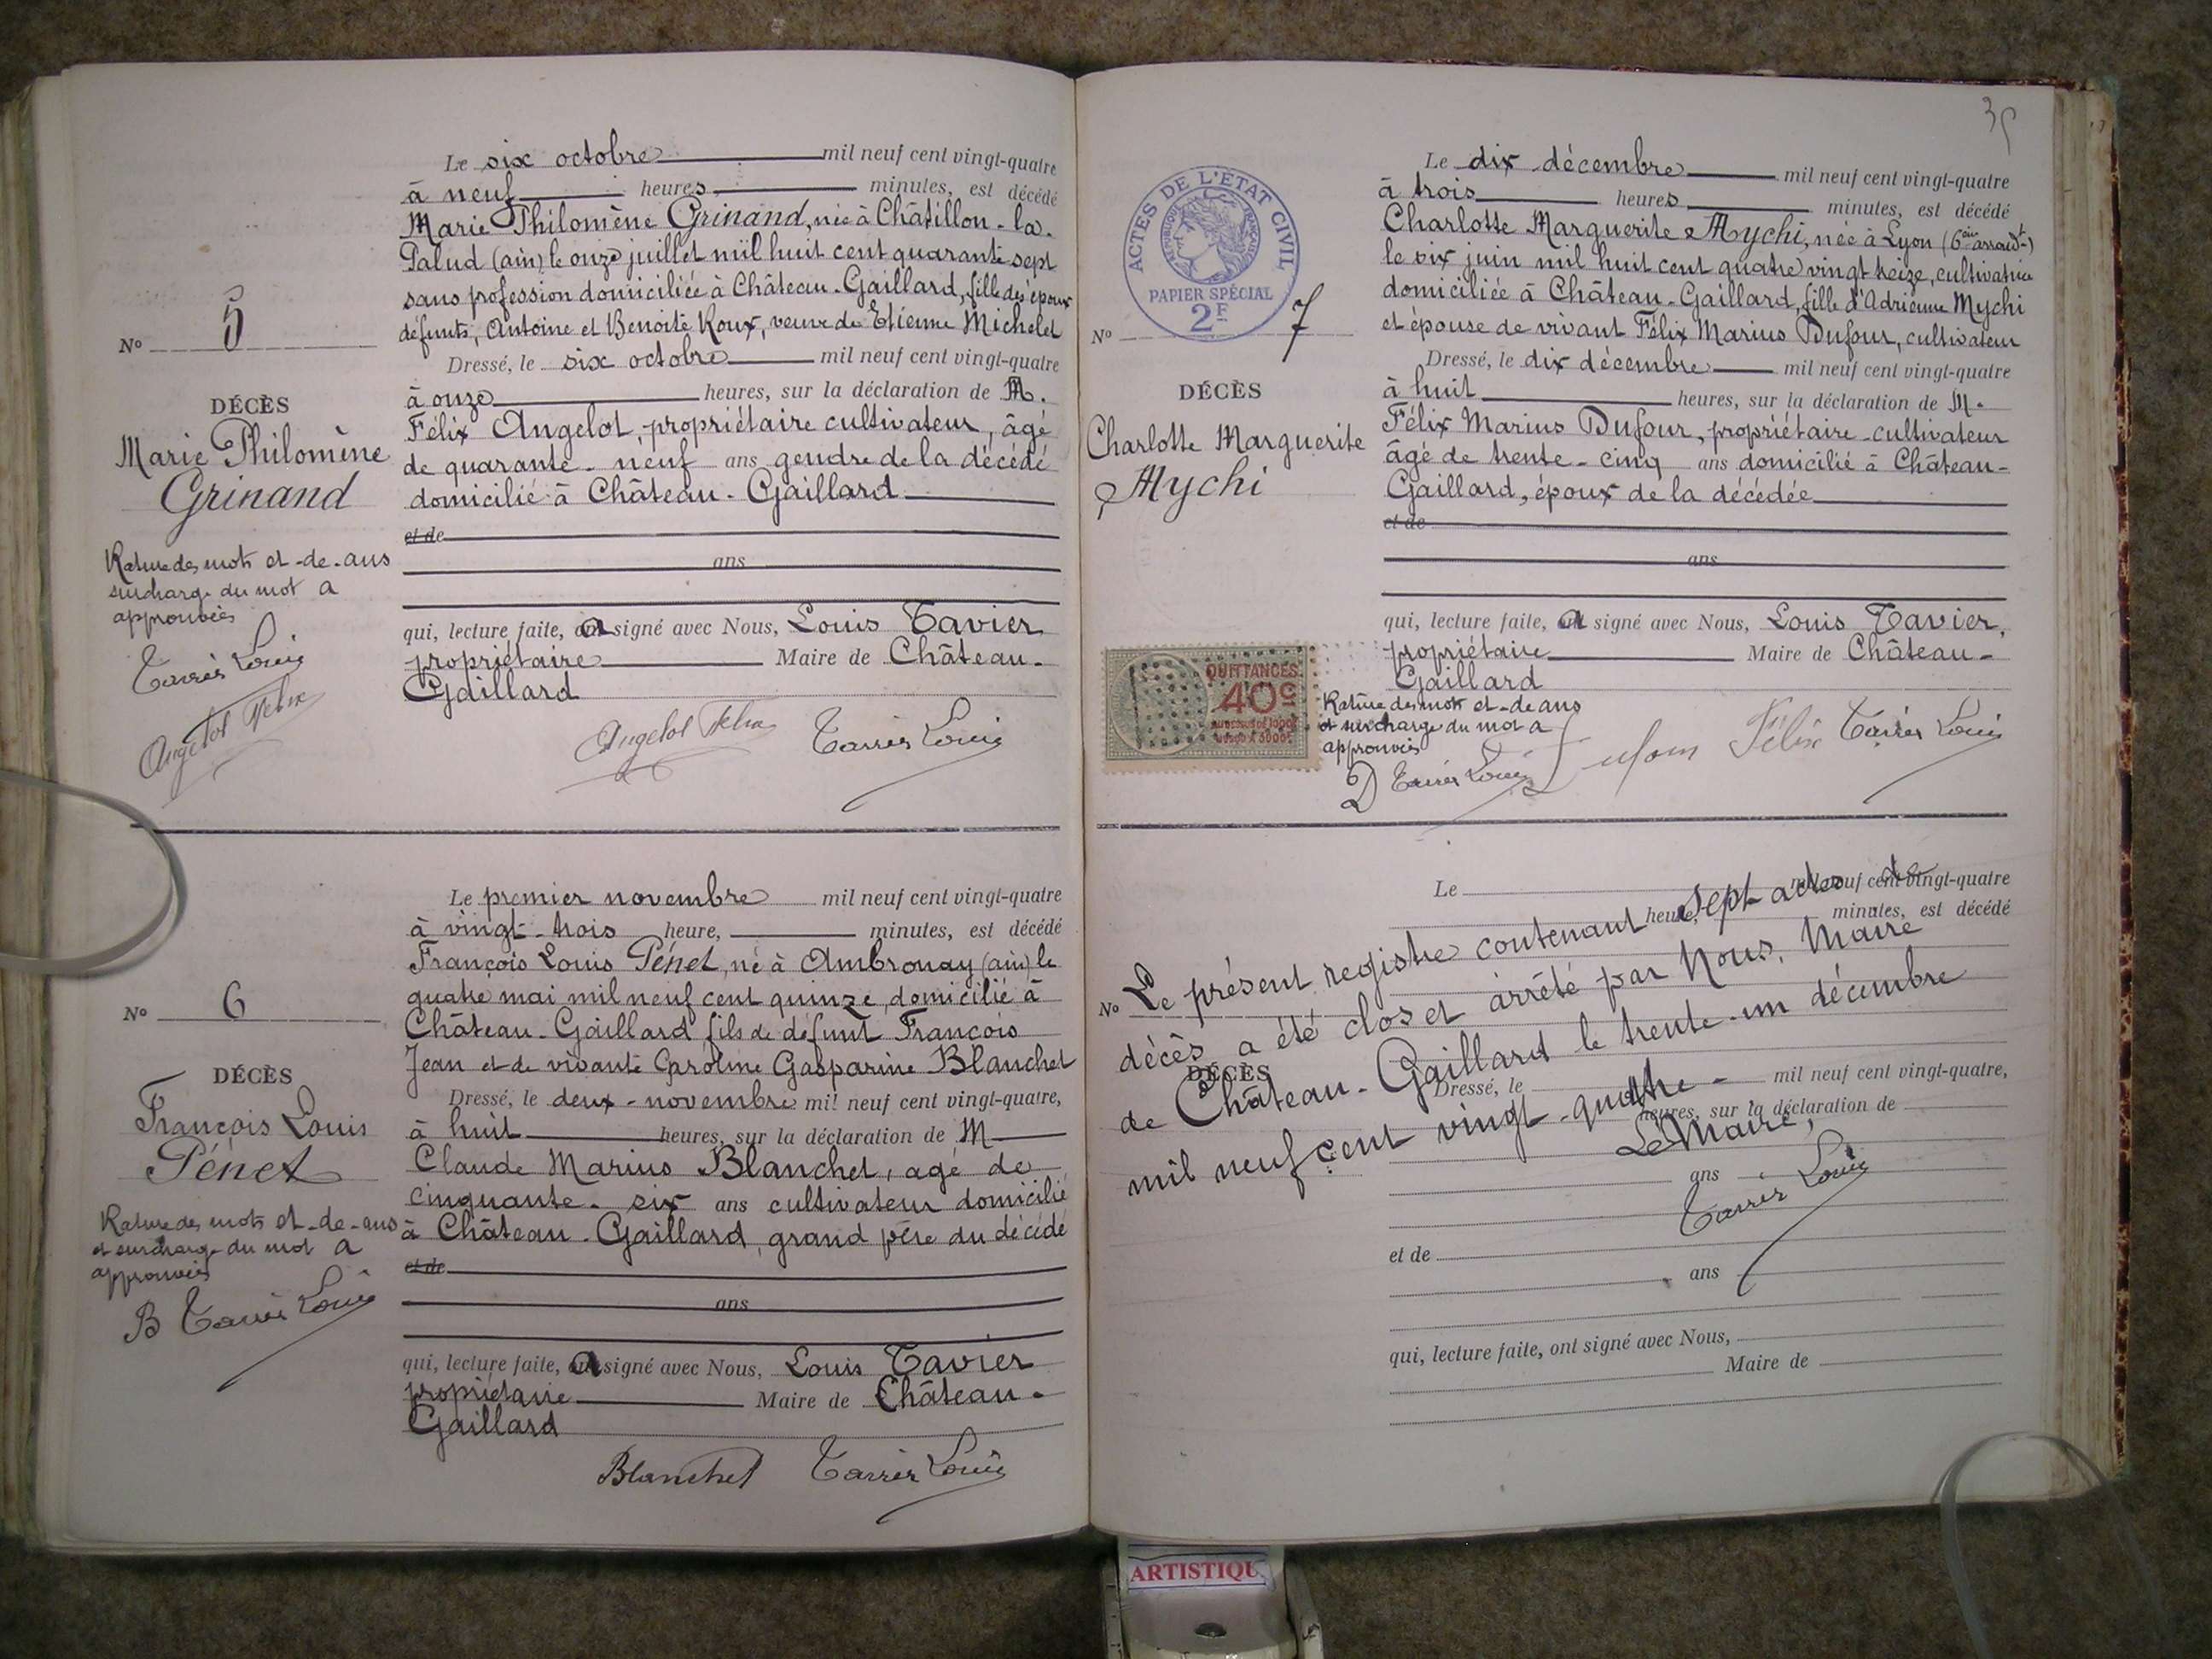 Le six octobre mil neuf cent vingt-quatre
à neuf heures minutes, est décédé
Marie Philomène Grinand, née à Châtillon-la-
Palud (ain) le onze juillet mil huit cent quarante sept
sans profession domiciliée à Château-Gaillard, fille des époux
défunts, Antoine et Benoite Roux, veuve de Etienne Michelet
Nº 5
Dressé, le six octobre mil neuf cent vingt-quatre
à onze heures, sur la déclaration de M.
Félix Angelot, propriétaire cultivateur, âgé
de quarante-neuf ans gendre de la décédé
domicilié à Château-Gaillard
et de
ans
qui, lecture faite, a signé avec Nous, Louis Tavier
propriétaire Maire de Château-
Gaillard
DÉCÈS
Marie Philomène
Grinand
Rature des mots et-de-ans
surcharge du mot a
approuvées
Angelot Félix
Le premier novembre mil neuf cent vingt-quatre
à vingt-trois heure, minutes, est décédé
François Louis Pénet, né à Ambronay (ain) le
quatre mai mil neuf cent quinze, domicilié à
Château-Gaillard fils de défunt François
Jean et de vivante Caroline Gasparine Blanchet
Nº 6
Dressé, le deux-novembre mil neuf cent vingt-quatre,
à huit heures, sur la déclaration de M
Claude Marius Blanchet, agé de
cinquante-six ans cultivateur domicilié
à Château-Gaillard, grand père du décédé
et de
ans
qui, lecture faite, a signé avec Nous, Louis Tavier
propriétaire Maire de Château-
Gaillard
Blanchet
DÉCÈS
François Louis
Pénet
Rature des mots et-de-ans
et surcharge du mot a
approuvées
B
35
ACTES DE L'ÉTAT CIVIL
RÉPUBLIQUE FRANÇAISE
PAPIER SPÉCIAL
2F
Le dix décembre mil neuf cent vingt-quatre
à trois heures minutes, est décédé
Charlotte Marguerite Mychi, née à Lyon (6ème arrondt)
le six juin mil huit cent quatre vingt treize, cultivatrice
domiciliée à Château-Gaillard, fille d'Adrienne Mychi
et épouse de vivant Félix Marius Dufour, cultivateur
Nº 7
Dressé, le dix décembre mil neuf cent vingt-quatre
à huit heures, sur la déclaration de M.
Félix Marius Dufour, propriétaire-cultivateur
âgé de trente-cinq ans domicilié à Château-
Gaillard, époux de la décédée
et de
ans
qui, lecture faite, a signé avec Nous, Louis Tavier,
propriétaire Maire de Château-
Gaillard
DÉCÈS
Charlotte Marguerite
Mychi
QUITTANCES
40c
Rature des mots et-de ans
et surcharge du mot a
approuvées
D
Dufour Félix
Le mil neuf cent vingt-quatre
heure, minutes, est décédé
Nº
DÉCÈS
Dressé, le mil neuf cent vingt-quatre,
heures, sur la déclaration de
ans
et de
ans
qui, lecture faite, ont signé avec Nous,
Maire de
Le présent registre contenant sept actes de
décès a été clos et arrêté par Nous, Maire
de Château-Gaillard le trente-un décembre
mil neuf cent vingt-quatre-
Le Maire,
ARTISTIQU